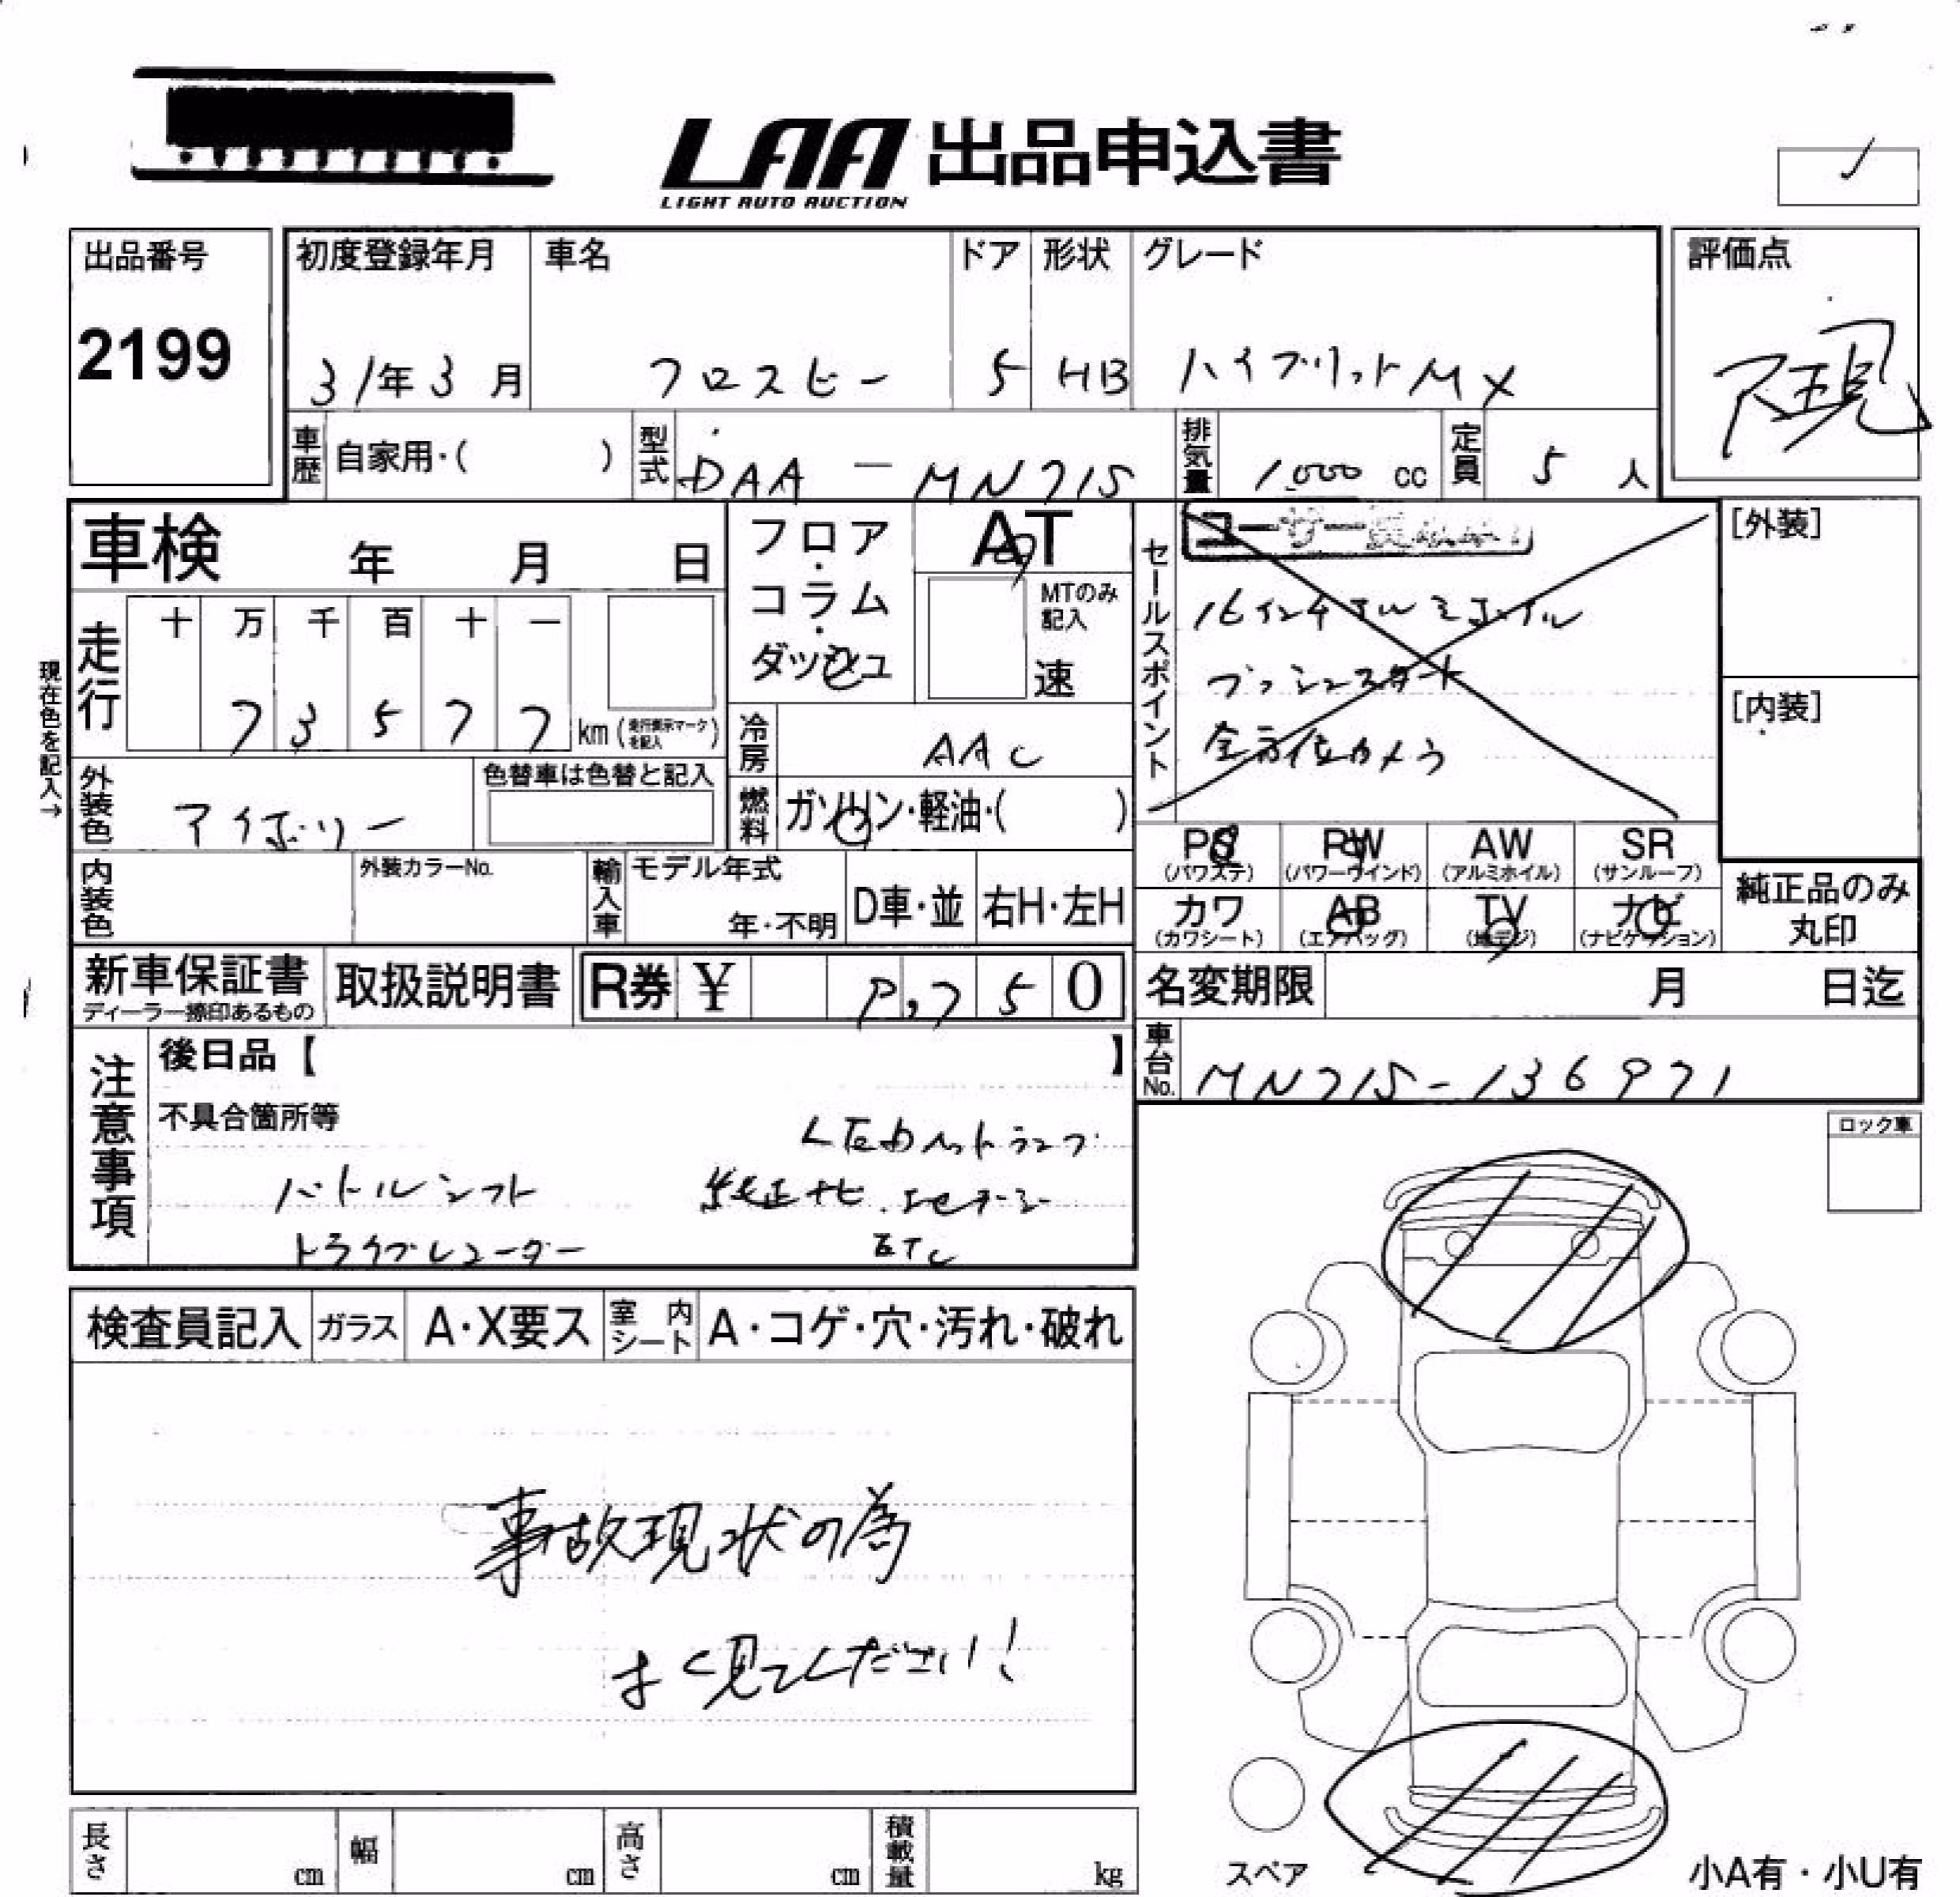 LAA 出品申込書
LIGHT AUTO AUCTION
出品番号
2199
初度登録年月 車名 ドア 形状 グレード
31年3月 クロスビー 5 HB ハイブリット MX
評価点
現
車歴 自家用・( ) 型式 DAA - MN71S 排気量 1,000 cc 定員 5 人
車検 年 月 日
フロア・コラム・ダッシュ
AT
MTのみ記入
速
セールスポイント
16インチアルミホイル
プッシュスタート
全方位カメラ
[外装]
[内装]
現在色を記入→
走行 十 万 千 百 十 一
7 3 5 7 7 km (走行表示マークを記入)
冷房 AAC
外装色 アイボリー
色替車は色替と記入
燃料 ガソリン・軽油・( )
PS (パワステ) PW (パワーウインド) AW (アルミホイル) SR (サンルーフ)
カワ (カワシート) AB (エアバッグ) TV (地デジ) ナビ (ナビゲーション)
純正品のみ丸印
内装色 外装カラーNo. 輸入車 モデル年式 年・不明 D車・並 右H・左H
新車保証書 ディーラー捺印あるもの 取扱説明書 R券 ¥ 9,750
名変期限 月 日迄
車台No. MN71S-136971
注意事項
後日品【 】
不具合箇所等
LEDヘットランプ
パドルシフト 純正ナビ
ドライブレコーダー ETC
ロック車
検査員記入 ガラス A・X要ス 室内シート A・コゲ・穴・汚れ・破れ
事故現状の為
よく見てください!
長さ cm 幅 cm 高さ cm 積載量 kg
スペア
小A有・小U有